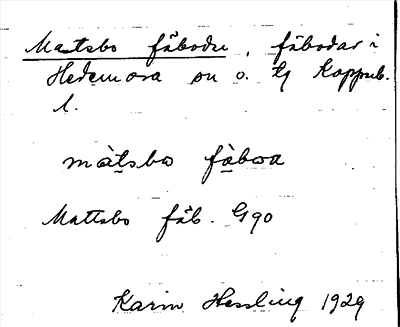 Mattsbo fäbodar, fäbodar i
Hedemora sn o. tg Koppub.
l.
màtsbω fàbωa
Mattsbo fäb. G90
Karin Hessling 1929